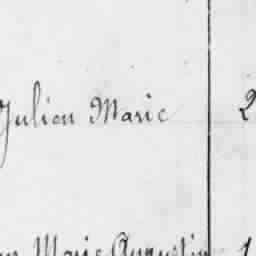 Julien Marie 2
Marie Augustin 1